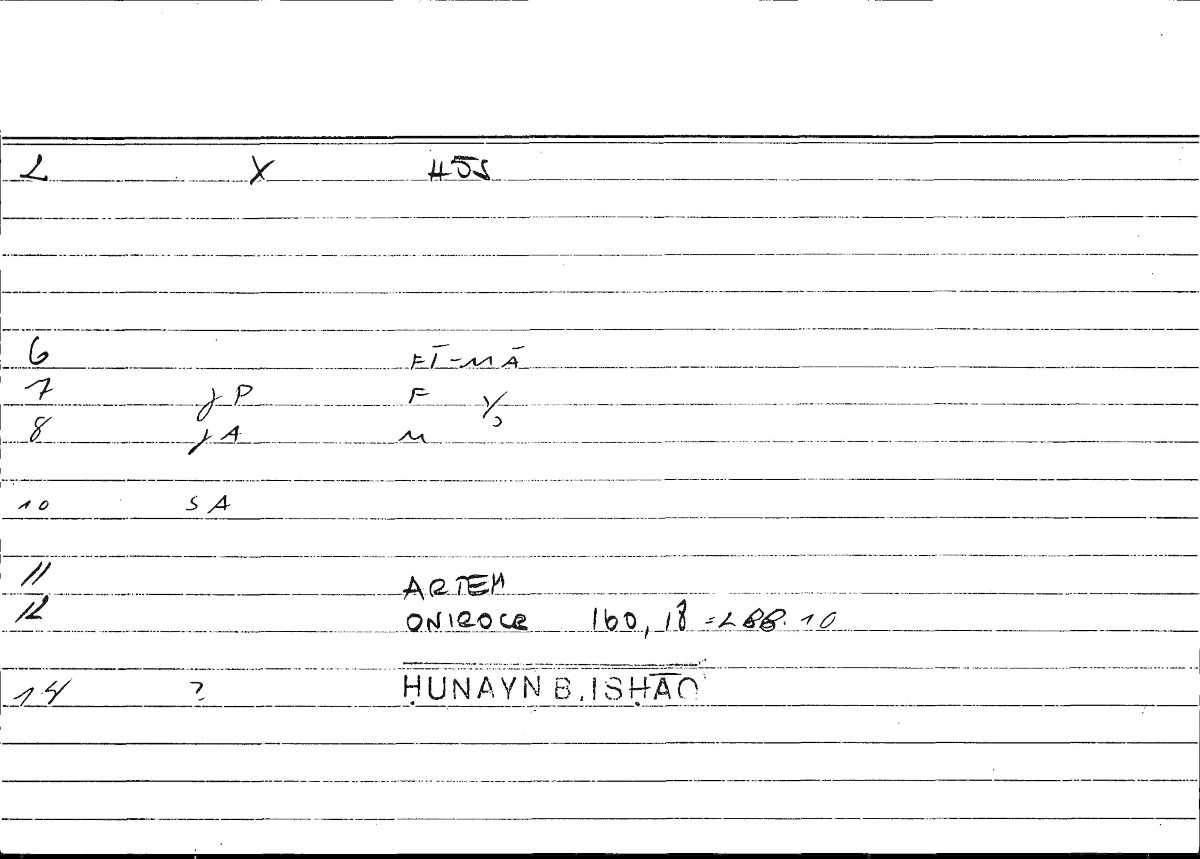 L X
6 FĪ-MĀ
7 γ P F
8 γ A M
10 S A
11 ARTEM
12 ONIROCR 160, 18 = 288. 10
14 ? ḤUNAYN B. ISḤĀQ